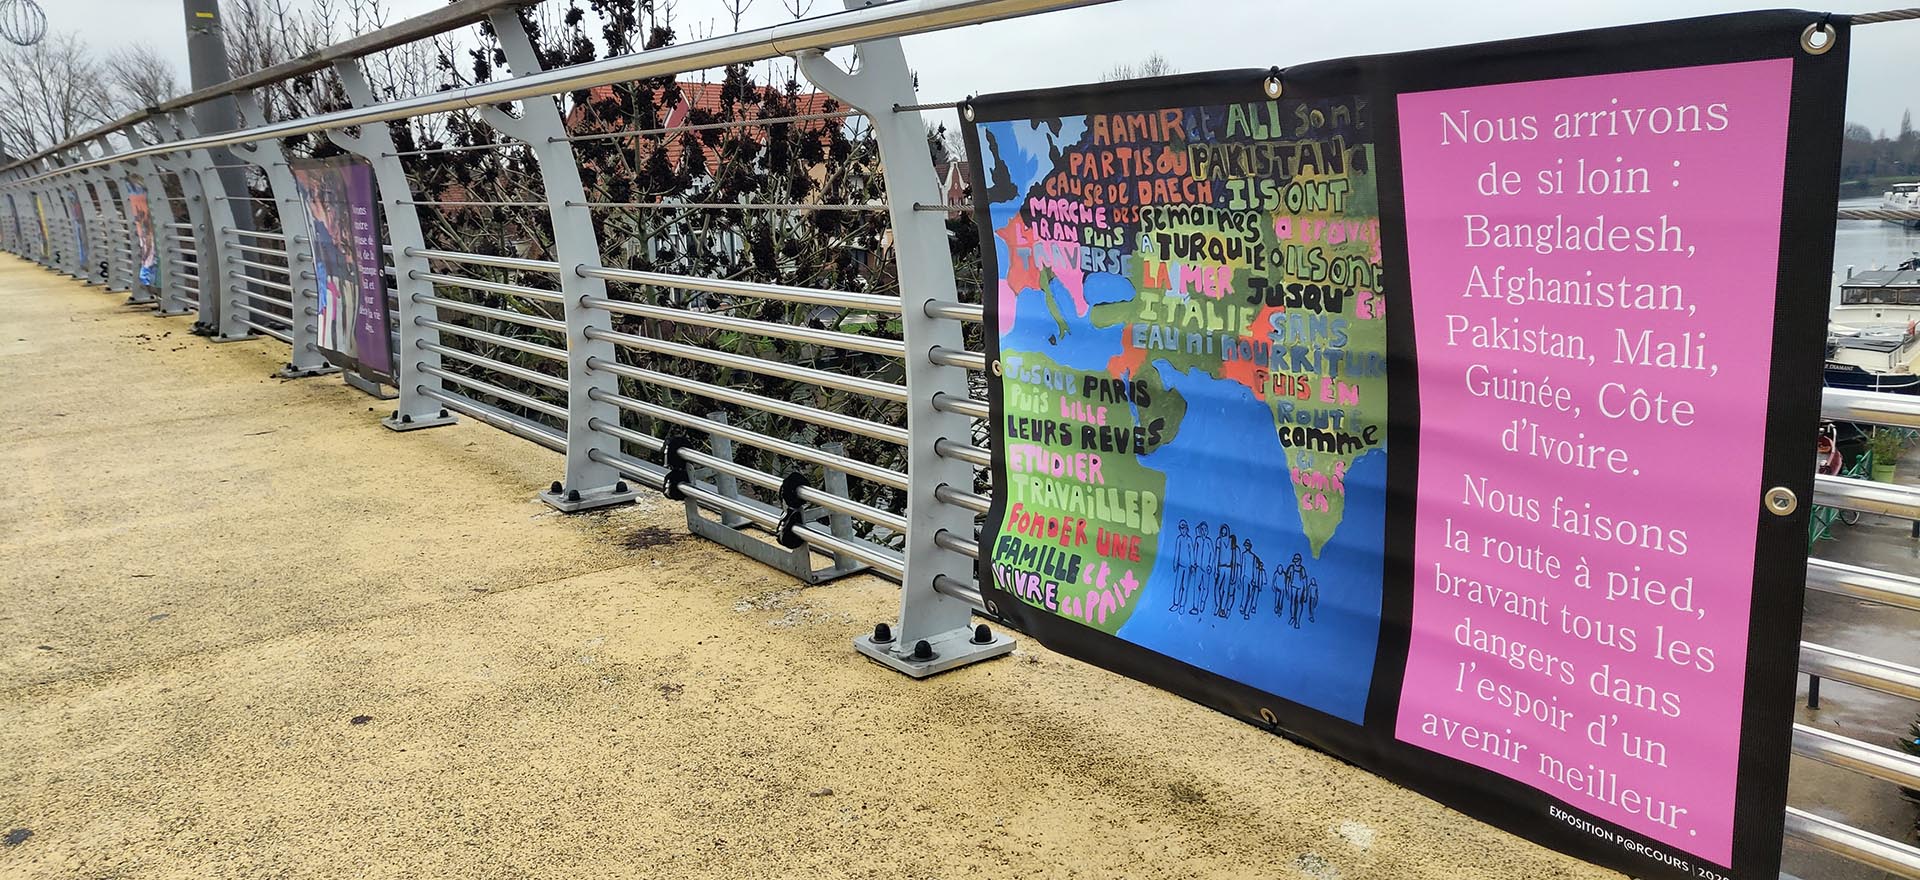 AAMIR et ALI sont
PARTIS DU PAKISTAN à
CAUSE DE DAECH. ILS ONT
MARCHE DES semaines
L'IRAN PUIS LA TURQUIE. ILS ONT
TRAVERSE LA MER JUSQU'EN
ITALIE SANS
EAU ni NOURRITURE
PUIS EN
ROUTE
comme
JUSQUE PARIS
PUIS LILLE
LEURS RÊVES
ETUDIER
TRAVAILLER
FONDER UNE
FAMILLE et
VIVRE
Nous arrivons
de si loin :
Bangladesh,
Afghanistan,
Pakistan, Mali,
Guinée, Côte
d'Ivoire.
Nous faisons
la route à pied,
bravant tous les
dangers dans
l'espoir d'un
avenir meilleur.
EXPOSITION P@RCOURS |